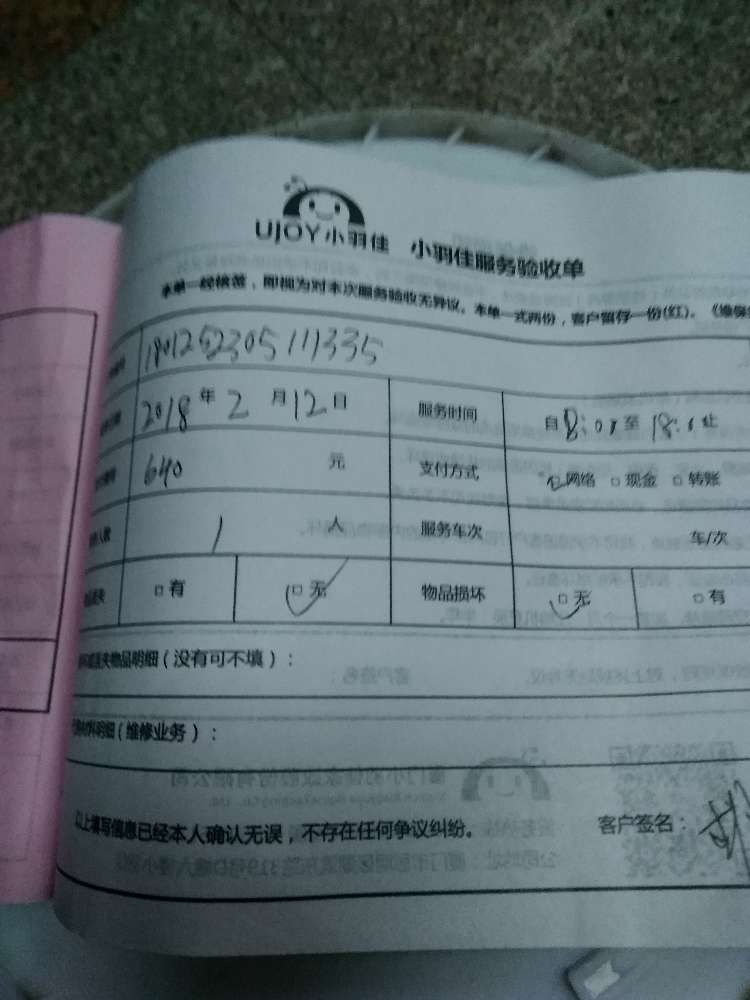 UJOY小羽佳 小羽佳服务验收单
本单一经核签，即视为对本次服务验收无异议。本单一式两份，客户留存一份(红)。
2018年2月12日 服务时间 自8:00至18:0止
640元 支付方式 网络 现金 转账
1人 服务车次 车/次
有 无 物品损坏 无 有
物品明细（没有可不填）：
明细（维修业务）：
以上填写信息已经本人确认无误，不存在任何争议纠纷。 客户签名：